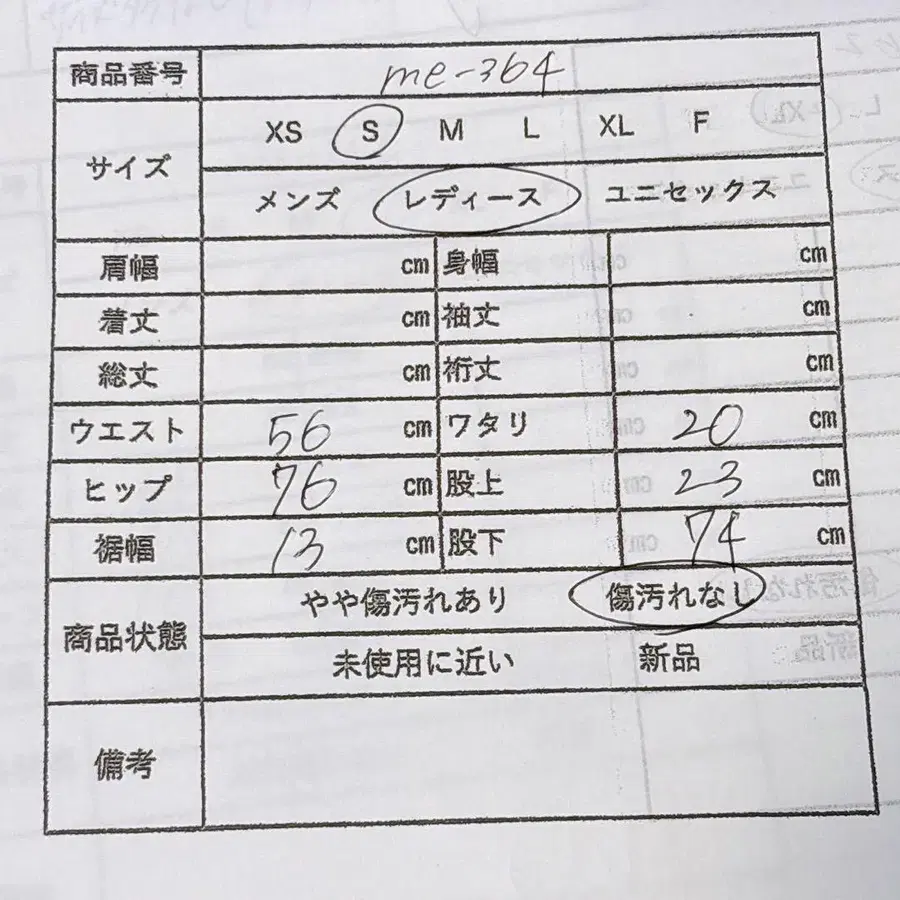 商品番号 me-364
サイズ XS S M L XL F
メンズ レディース ユニセックス
肩幅 cm 身幅 cm
着丈 cm 袖丈 cm
総丈 cm 裄丈 cm
ウエスト 56 cm ワタリ 20 cm
ヒップ 76 cm 股上 23 cm
裾幅 13 cm 股下 74 cm
商品状態 やや傷汚れあり 傷汚れなし
未使用に近い 新品
備考